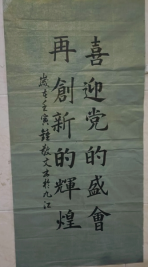 喜迎党的盛會
再創新的輝煌
歲在壬寅鐘敬文書於九江